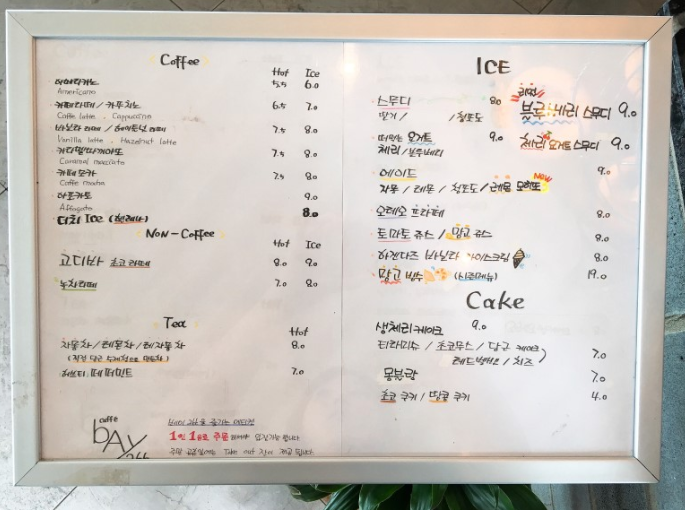 Coffee
Hot Ice
아메리카노 5.5 6.0
Americano
카페라떼 / 카푸치노 6.5 7.0
Caffe latte . Cappuccino
바닐라 라떼 / 헤이즐넛 라떼 7.5 8.0
Vanilla latte . Hazelnut latte
카라멜마끼아또 7.5 8.0
Caramel macchiato
카페모카 7.5 8.0
Coffee mocha
아포카토 9.0
Affogato
더치 Ice 8.0
Non-Coffee
Hot Ice
고디바 초코 라떼 8.0 9.0
녹차라떼 7.0 8.0
Tea
Hot
자몽차 / 레몬차 / 8.0
페퍼민트 7.0
caffe
bAY
1인 1음료 주문
Take out
ICE
스무디 8.0
딸기 / / 청포도
블루베리 스무디 9.0
요거트 9.0
체리 / 블루베리
체리 요거트 스무디 9.0
에이드 9.0
New
자몽 / 레몬 / 청포도 / 레몬 모히또
오레오 프라페 8.0
토마토 쥬스 / 망고 쥬스 8.0
하겐다즈 바닐라 아이스크림 8.0
망고 빙수 (신메뉴) 19.0
Cake
생체리케이크 9.0
티라미수 / 초코무스 / 당근 케이크
레드벨벳 / 치즈 7.0
몽블랑 7.0
초코 쿠키 / 땅콩 쿠키 4.0